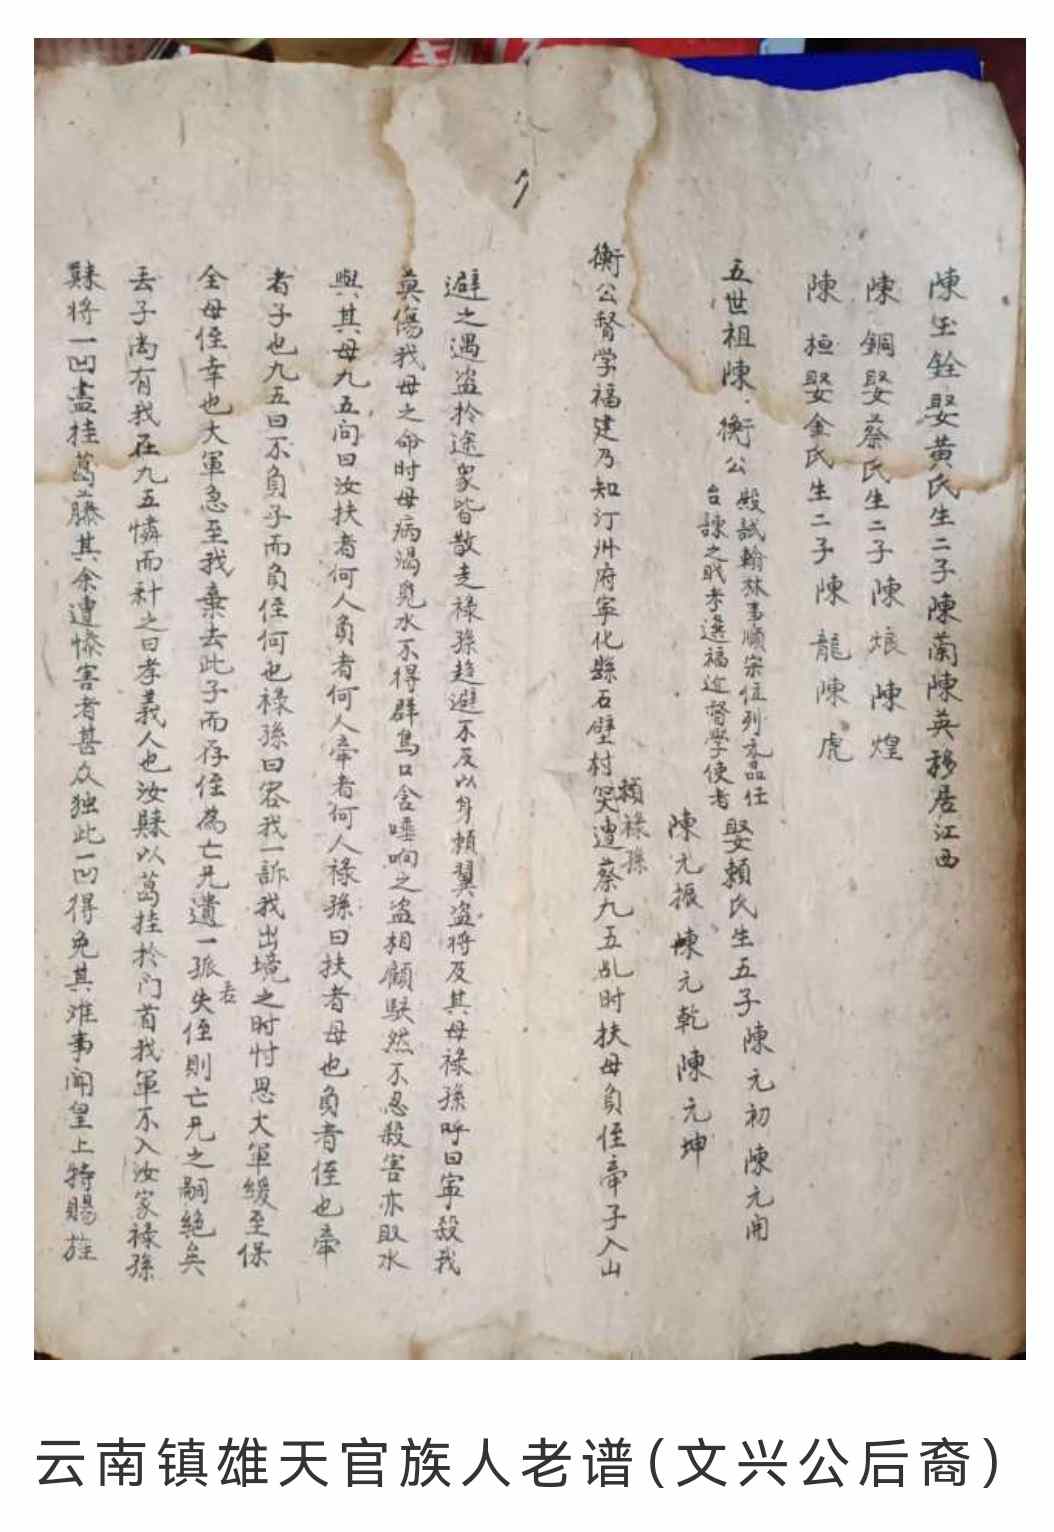 陳玉銓娶黃氏生二子陳蘭陳英移居江西
陳銅娶蔡氏生二子陳烺陳煌
陳桓娶金氏生二子陳龍陳虎
五世祖陳衡公
殿試翰林事順宗位列九品任
台諫之職孝選福建督學使者
娶賴氏生五子陳元初陳元開
陳元振陳元乾陳元坤
衡公督学福建乃知汀州府宁化縣石壁村突遭蔡九五乱时扶母負侄牽子入山
賴祿孫
避之遇盗於途眾皆散走禄孫趋避不及以身賴翼盗将及其母禄孫呼曰寧殺我
莫傷我母之命时母病渴覓水不得群鳥口含唾呴之盗相顧駭然不忍殺害亦取水
與其母九五问曰汝扶者何人負者何人牽者何人禄孫曰扶者母也負者侄也牽
者子也九五曰不負子而負侄何也禄孫曰容我一訴我出境之时忖思大軍緩至保
全母侄幸也大軍急至我棄去此子而存侄為亡兄遺一孤失侄則亡兄之嗣絕矣
若
丢子尚有我在九五憐而科之曰孝義人也汝縣以葛挂於门首我軍不入汝家禄孫
縣将一凹盡挂葛藤其余遭惨害者甚众独此一凹得免其难事闻皇上特賜旌
云南镇雄天官族人老谱(文兴公后裔)